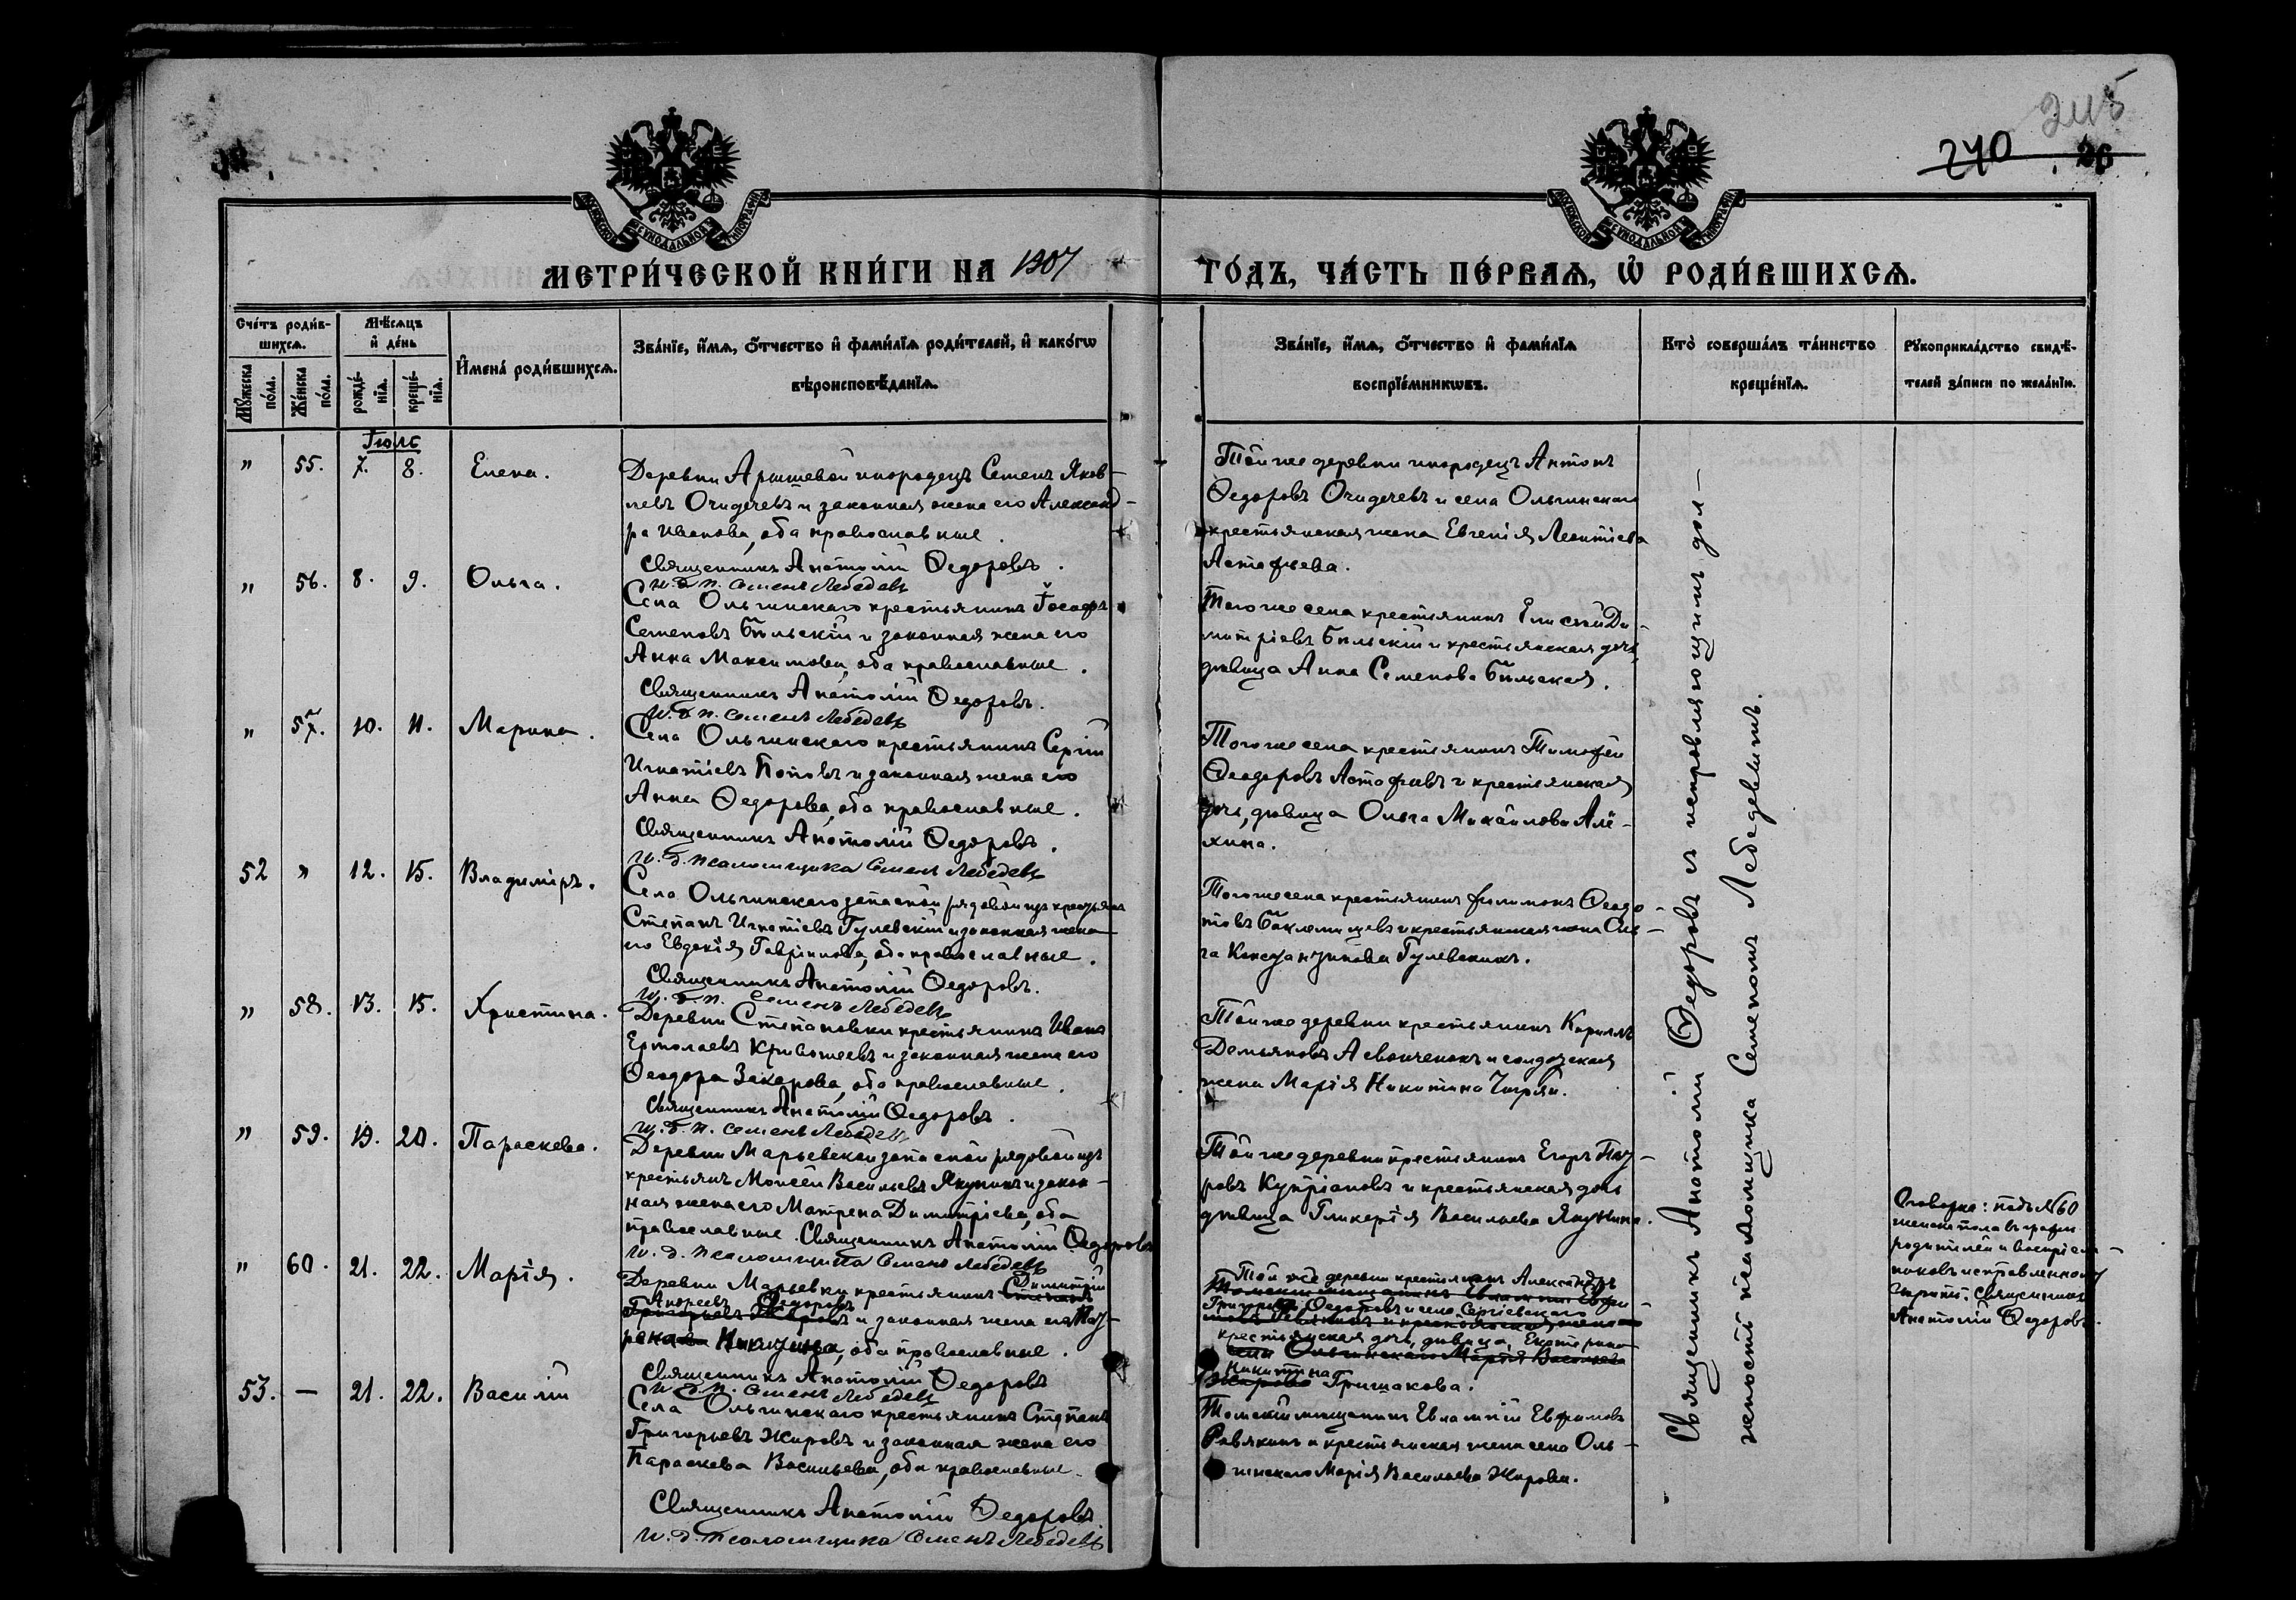 245
240 26
МОСКОВСКОЙ СѴНОДАЛЬНОЙ ТИПОГРАФІИ
МОСКОВСКОЙ СѴНОДАЛЬНОЙ ТИПОГРАФІИ
МЕТРИ́ЧЕСКОЙ КНИ́ГИ НА 1907
ГО́ДЪ, ЧА́СТЬ ПЕ́РВАѦ, Ѽ РОДИ́ВШИХСѦ.
Сче́тъ роди́в-
шихсѧ.
Мꙋ́жеска по́ла.
Же́нска по́ла.
Мѣ́сѧцъ
и҆ де́нь
рожде́-
нїѧ.
креще́-
нїѧ.
И҆мена̀ роди́вшихсѧ.
Зва́нїе, и҆́мѧ, ѻ҆́тчество и҆ фами́лїѧ роди́телей, и҆ како́гѡ
вѣроисповѣ́данїѧ.
Зва́нїе, и҆́мѧ, ѻ҆́тчество и҆ фами́лїѧ
воспрїе́мникѡвъ.
Кто̀ соверша́лъ та́инство
креще́нїѧ.
Рꙋкоприкла́дство свидѣ́-
телей за́писи по жела́нїю.
Іюль
" 55. 7. 8. Елена.
Деревни Арышевой инородецъ Семенъ Яков-
левъ Очидечевъ и законная жена его Александ-
ра Иванова, оба православные.
Священникъ Анатолій Ѳедоровъ.
И. д. п. Семенъ Лебедевъ
Той же деревни инородецъ Антонъ
Ѳедоровъ Очидечевъ и села Ольгинскаго
крестьянская жена Евгенія Леонтіева
Астафьева.
" 56. 8. 9. Ольга.
Села Ольгинскаго крестьянинъ Іосифъ
Семеновъ Бѣльскій и законная жена его
Анна Максимова, оба православные.
Священникъ Анатолій Ѳедоровъ.
И. д. п. Семенъ Лебедевъ
Того же села крестьянинъ Елисей Ди-
митріевъ Бѣльскій и крестьянская дочь,
дѣвица Анна Семенова Бѣльская.
" 57. 10. 11. Марина.
Села Ольгинскаго крестьянинъ Сергій
Игнатіевъ Поповъ и законная жена его
Анна Ѳедорова, оба православные.
Священникъ Анатолій Ѳедоровъ.
И. д. псаломщика Семенъ Лебедевъ
Того же села крестьянинъ Тимофей
Ѳеодоровъ Астафьевъ и крестьянская
дочь, дѣвица Ольга Михайлова Алё-
хина.
52 " 12. 15. Владиміръ.
Села Ольгинскаго запасной рядовой изъ крестьянъ
Степанъ Игнатіевъ Гулевскій и законная жена
его Евдокія Гавріилова, оба православные.
Священникъ Анатолій Ѳедоровъ.
И. д. п. Семенъ Лебедевъ
Того же села крестьянинъ Филимонъ Ѳеодо-
товъ и крестьянская жена Оль-
га Константинова Гулевскихъ.
" 58. 13. 15. Христина.
Деревни Степановки крестьянинъ Иванъ
Ермолаевъ Кривошеевъ и законная жена его
Ѳеодора Захарова, оба православные.
Священникъ Анатолій Ѳедоровъ.
И. д. п. Семенъ Лебедевъ
Той же деревни крестьянинъ Кириллъ
Демьяновъ и солдатская
жена Марія Никитина
" 59. 19. 20. Параскева.
Деревни Марьевской запасной рядовой изъ
крестьянъ Моисей Васильевъ Якунинъ и закон-
ная жена его Матрена Димитріева, оба
православные. Священникъ Анатолій Ѳедоровъ
И. д. псаломщика Семенъ Лебедевъ
Той же деревни крестьянинъ Егоръ Пет-
ровъ Купріановъ и крестьянская дочь
дѣвица Гликерія Васильева Якунина.
" 60. 21. 22. Марія.
Деревни Марьевки крестьянинъ Димитрій
Андреевъ Ѳедоровъ
и законная жена его
Никитина, оба православные.
Священникъ Анатолій Ѳедоровъ
И. д. п. Семенъ Лебедевъ
Той же деревни крестьянинъ Александръ
Григорьевъ Ѳедоровъ и села Сергіевскаго
крестьянская дочь, дѣвица, Екатерина
Никитина
Гришакова.
Оговорка: подъ №60
женска пола въ графѣ
родителей и воспріем-
никовъ исправленному
вѣрить. Священникъ
Анатолій Ѳедоровъ.
53. — 21. 22. Василій
Села Ольгинскаго крестьянинъ Степанъ
Григорьевъ Жировъ и законная жена его
Параскева Васильева, оба православные.
Священникъ Анатолій Ѳедоровъ
И. д. псаломщика Семенъ Лебедевъ
Томскій мѣщанинъ Евлампій Евфимовъ
Ревякинъ и крестьянская жена села Оль-
гинскаго Марія Васильева Жирова.
Священникъ Анатолій Ѳедоровъ съ исправляющимъ дол-
жность псаломщика Семеномъ Лебедевымъ.